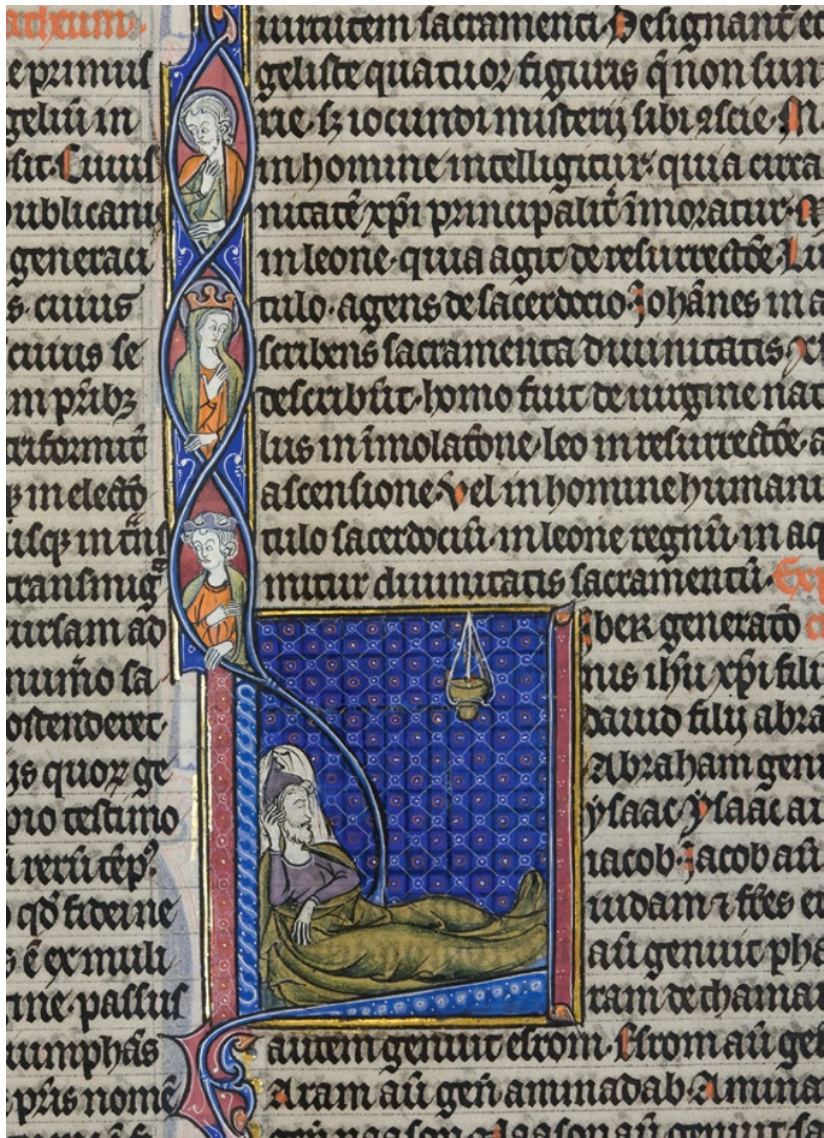 atheum.
e primus
geliū in
sit. Cuius
publicani
generaci
s. cuius
cuius se
m pr̄ibȝ
triformit̄
in electō
usqȝ in
transmig̃
ursam ad
numō sa
ostenderet.
quoꝝ ge
testimo
rerū tēp᷒
qd̄ fidei ne
ē ex muli
ine. passus
iumphās
pr̄is nomē
uirtutem sacramenti. Designant̄ et
geliste quatuor figuris q̄ non sun
rie. sȝ iocundi misterij sibi ꝯscie. M
in homine intelligitur. quia circa
nitatē xp̄i principalit̄ īmoratur. M
in leone. quia agit de resurrectōe. Lu
tulo. agens de sacerdocio. Johānes in a
scribens sacramenta diuinitatis.
describūt. homo fuit de uirgine nat
lus in īmolatōne. leo in resurrectōe. a
ascensione. Vel in homine humani
tulo sacerdociū. in leone regnū. in aq
mitur diuinitatis sacramentū. Exp
iber generatō
nis ih̄u xp̄i fili
dauid filij abra
Abraham genu
ysaac. Ysaac au
iacob. Jacob aū
iudam ⁊ fr̄es ei
aū genuit pha
ram de thamar
autem genuit esrom. Esrom aū gen
Aram aū gen̄ aminadab. Amina
gen̄ naason. Naason aū genuit sa